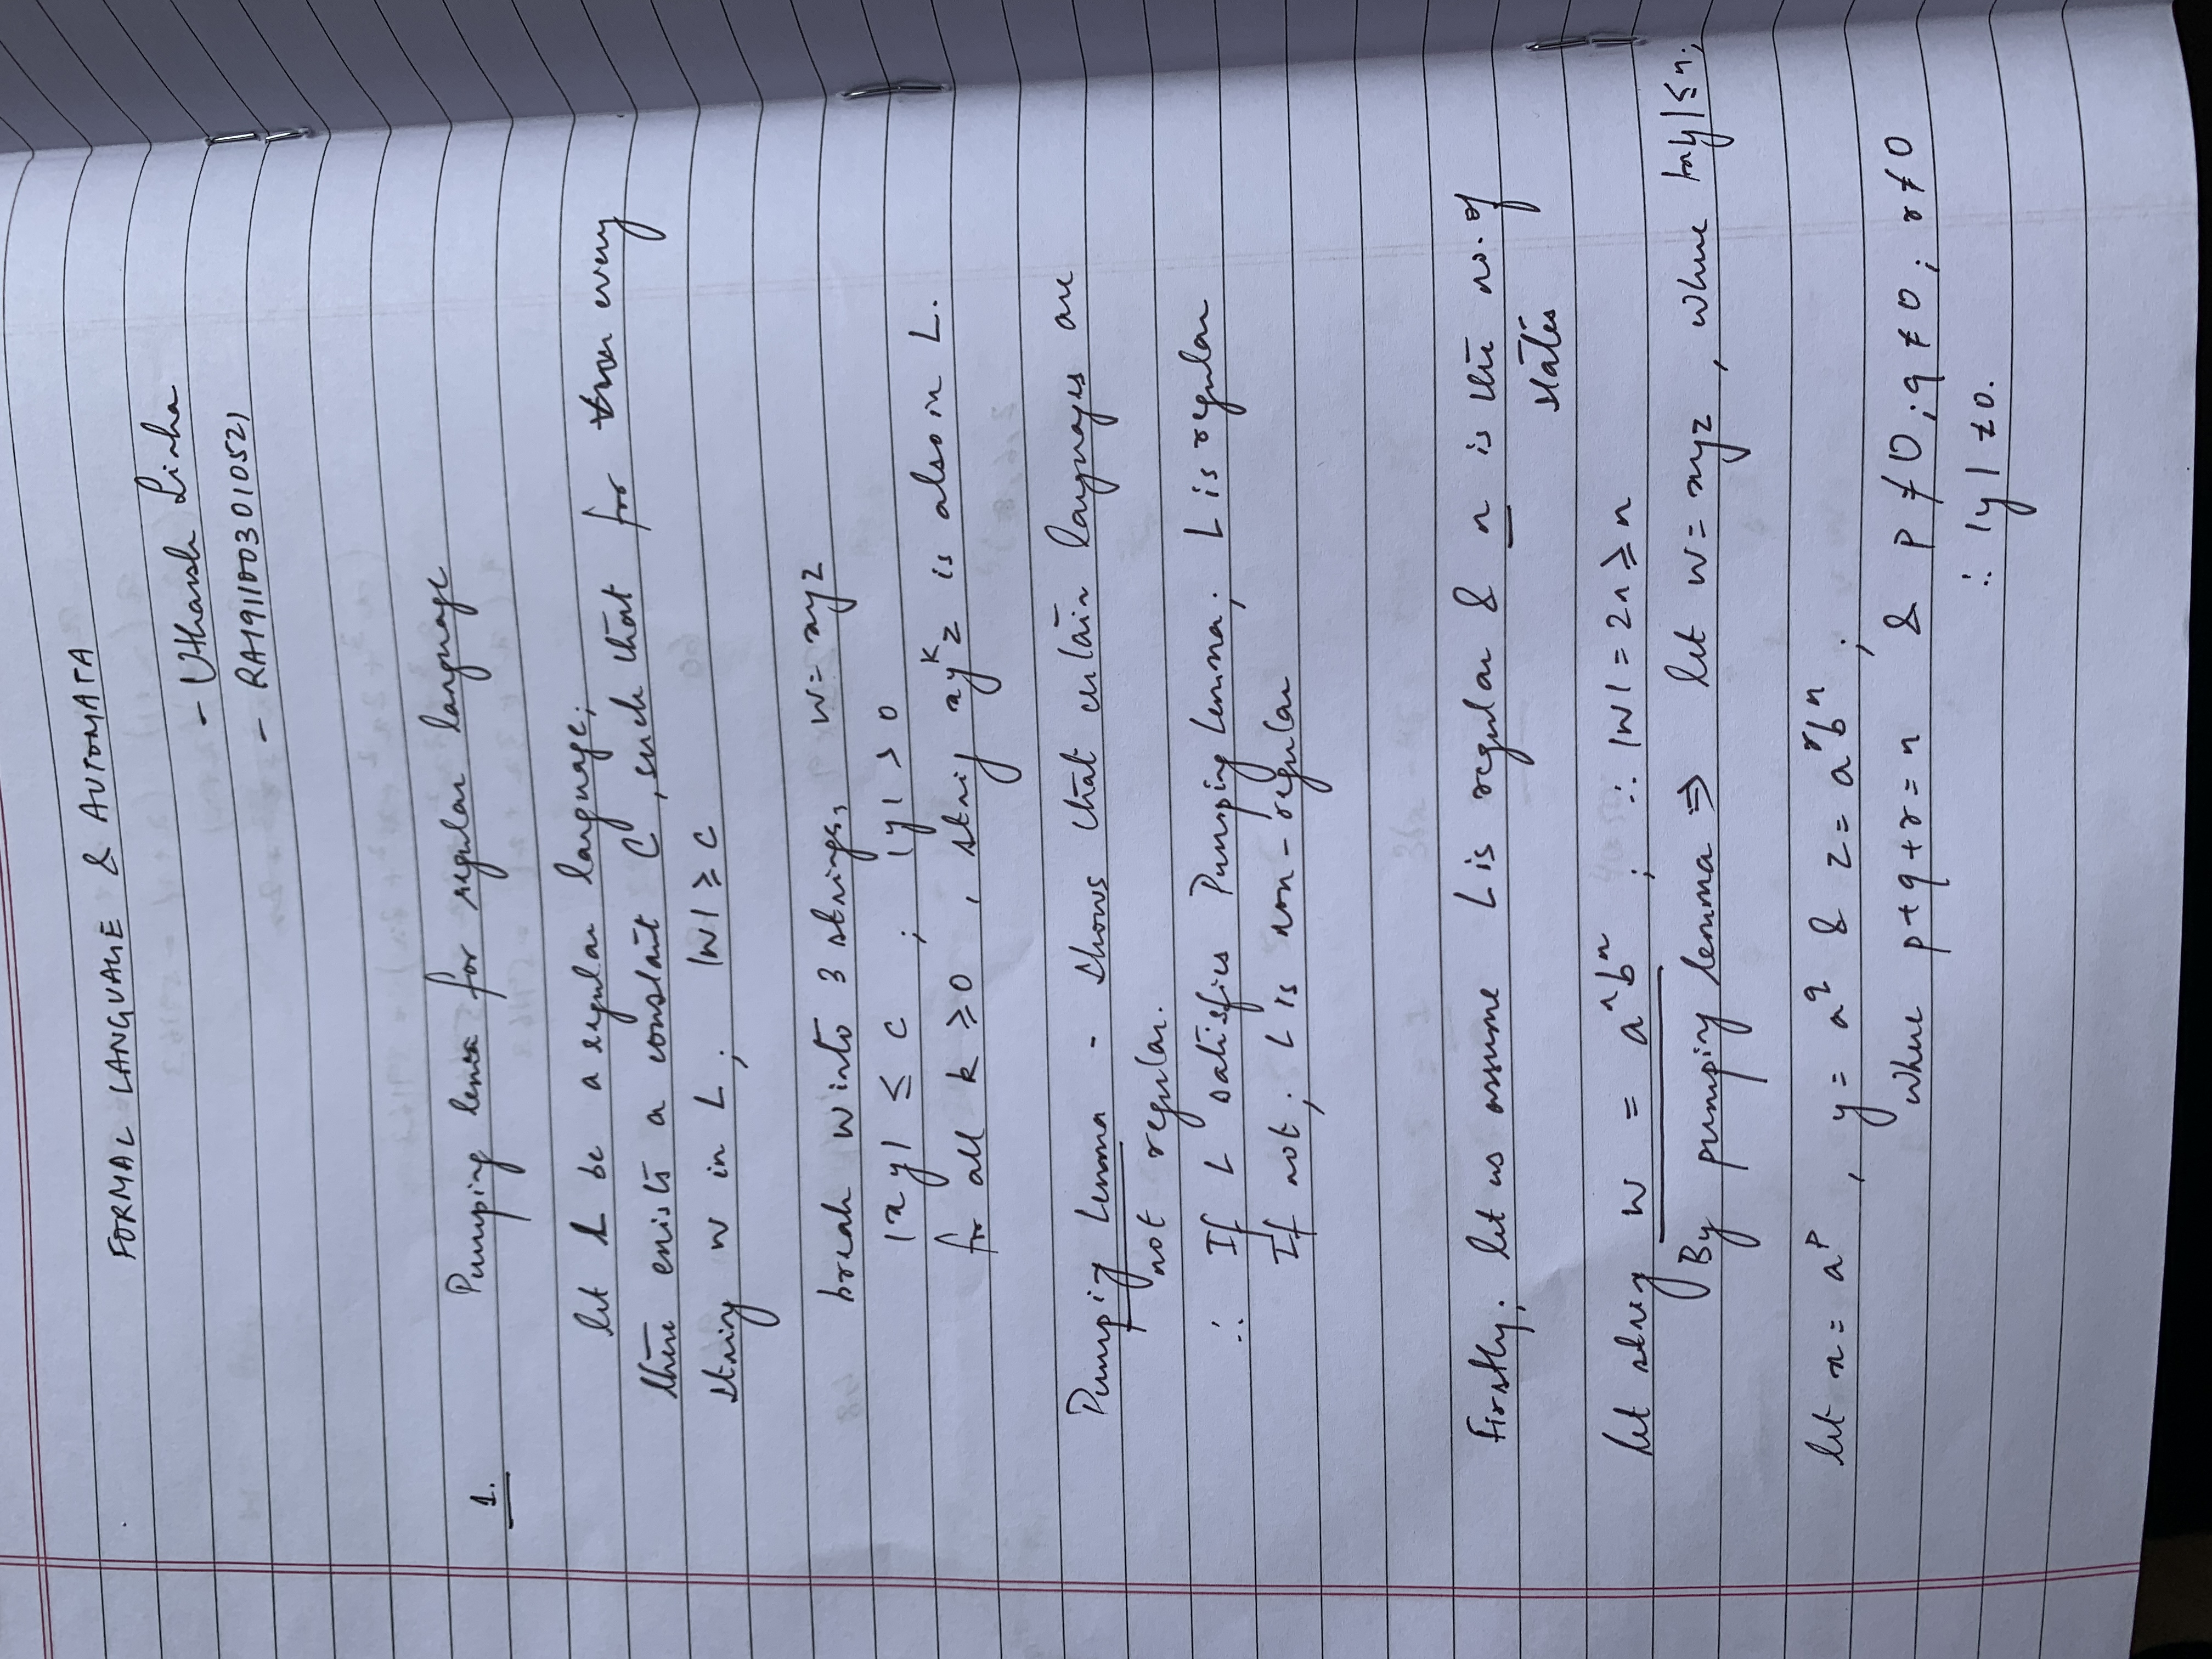 FORMAL LANGUAGE & AUTOMATA
- Utkarsh Sinha
- RA1911003010521
1. Pumping lema for regular language
let L be a regular language;
there exists a constant C, such that for every
string w in L; |W| ≥ C
break w into 3 strings, w= xyz
|xy| ≤ C ; |y| > 0
for all k ≥ 0 , string xyᵏz is also in L.
Pumping Lemma - shows that certain languages are
not regular.
∴ If L satisfies Pumping Lemma; L is regular
If not; L is non-regular
Firstly; let us assume L is regular & n is the no. of
states
let string w = aⁿbⁿ ; ∴ |W| = 2n ≥ n
By pumping lemma ⇒ let w= xyz , where |xy| ≤ n;
let x = aᵖ , y = a^q & z = aʳbⁿ ;
where p+q+r = n & p ≠ 0 ; q ≠ 0 ; r ≠ 0
∴ |y| ≠ 0.